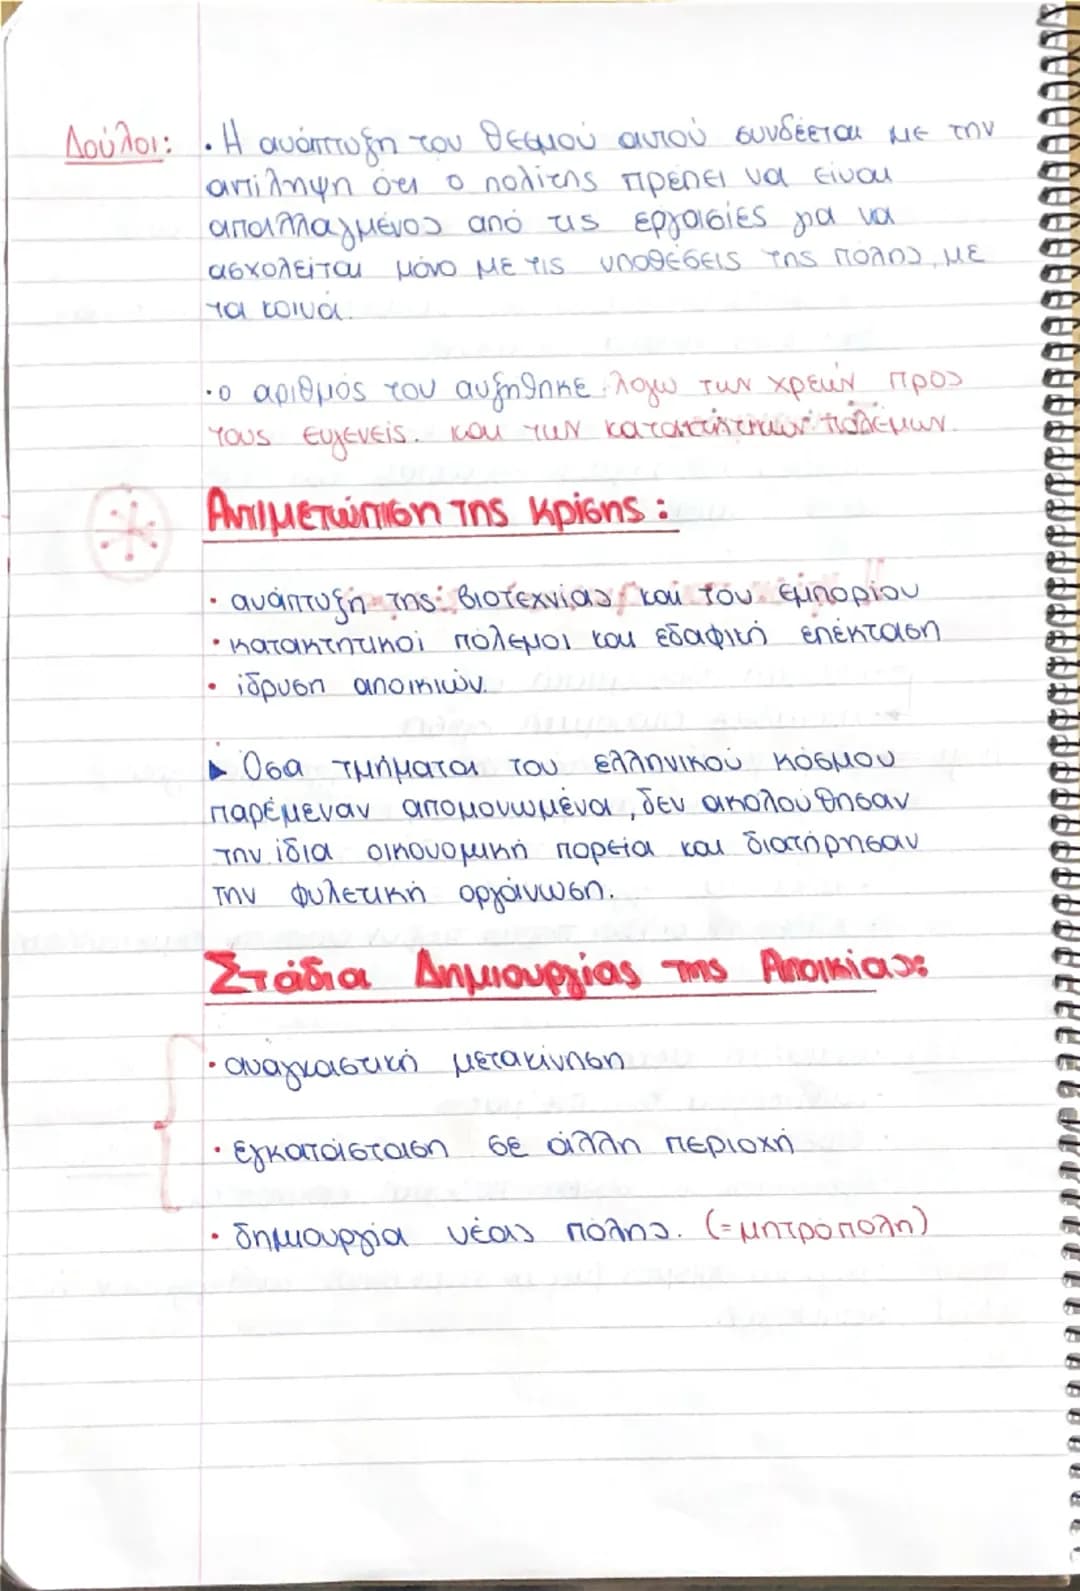 Δούλοι: • Η ανάπτυξη του θεσμού αυτού συνδέεται με την
αντίληψη ότι ο πολίτης πρέπει να είναι
απαλλαγμένος από τις εργασίες για να
ασχολείται μόνο με τις υποθέσεις της πόλης, με
τα κοινά.
• ο αριθμός του αυξήθηκε λόγω των χρεών προς
τους ευγενείς. και των κατακτητικών πολέμων.
Αντιμετώπιση της κρίσης:
• ανάπτυξη της βιοτεχνίας και του εμπορίου
• κατακτητικοί πόλεμοι και εδαφική επέκταση
• ίδρυση αποικιών.
▶ Όσα τμήματα του ελληνικού κόσμου
παρέμεναν απομονωμένα, δεν ακολούθησαν
την ίδια οικονομική πορεία και διατήρησαν
την φυλετική οργάνωση.
Στάδια Δημιουργίας της Αποικίας:
• αναγκαστική μετακίνηση
• εγκατάσταση σε άλλη περιοχή
• δημιουργία νέας πόλης. (=μητρόπολη)